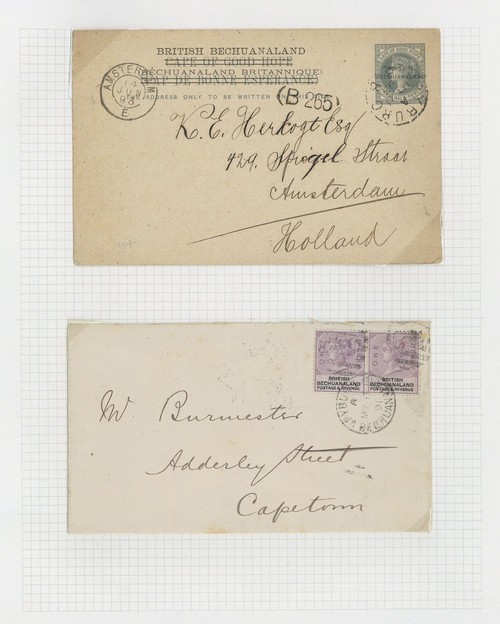 BRITISH BECHUANALAND
CAPE OF GOOD HOPE
BECHUANALAND BRITANNIQUE
(CAP DE BONNE ESPERANCE)
ADDRESS ONLY TO BE WRITTEN ON THIS
AMSTERDAM
93
E
(B 265)
K. E. Herkogt Esq
429. Spiegel Straat
Amsterdam
Holland
BRITISH
BECHUANALAND
POSTAGE & REVENUE
BRITISH
BECHUANALAND
POSTAGE & REVENUE
Mr Burmester
Adderley Street
Capetown